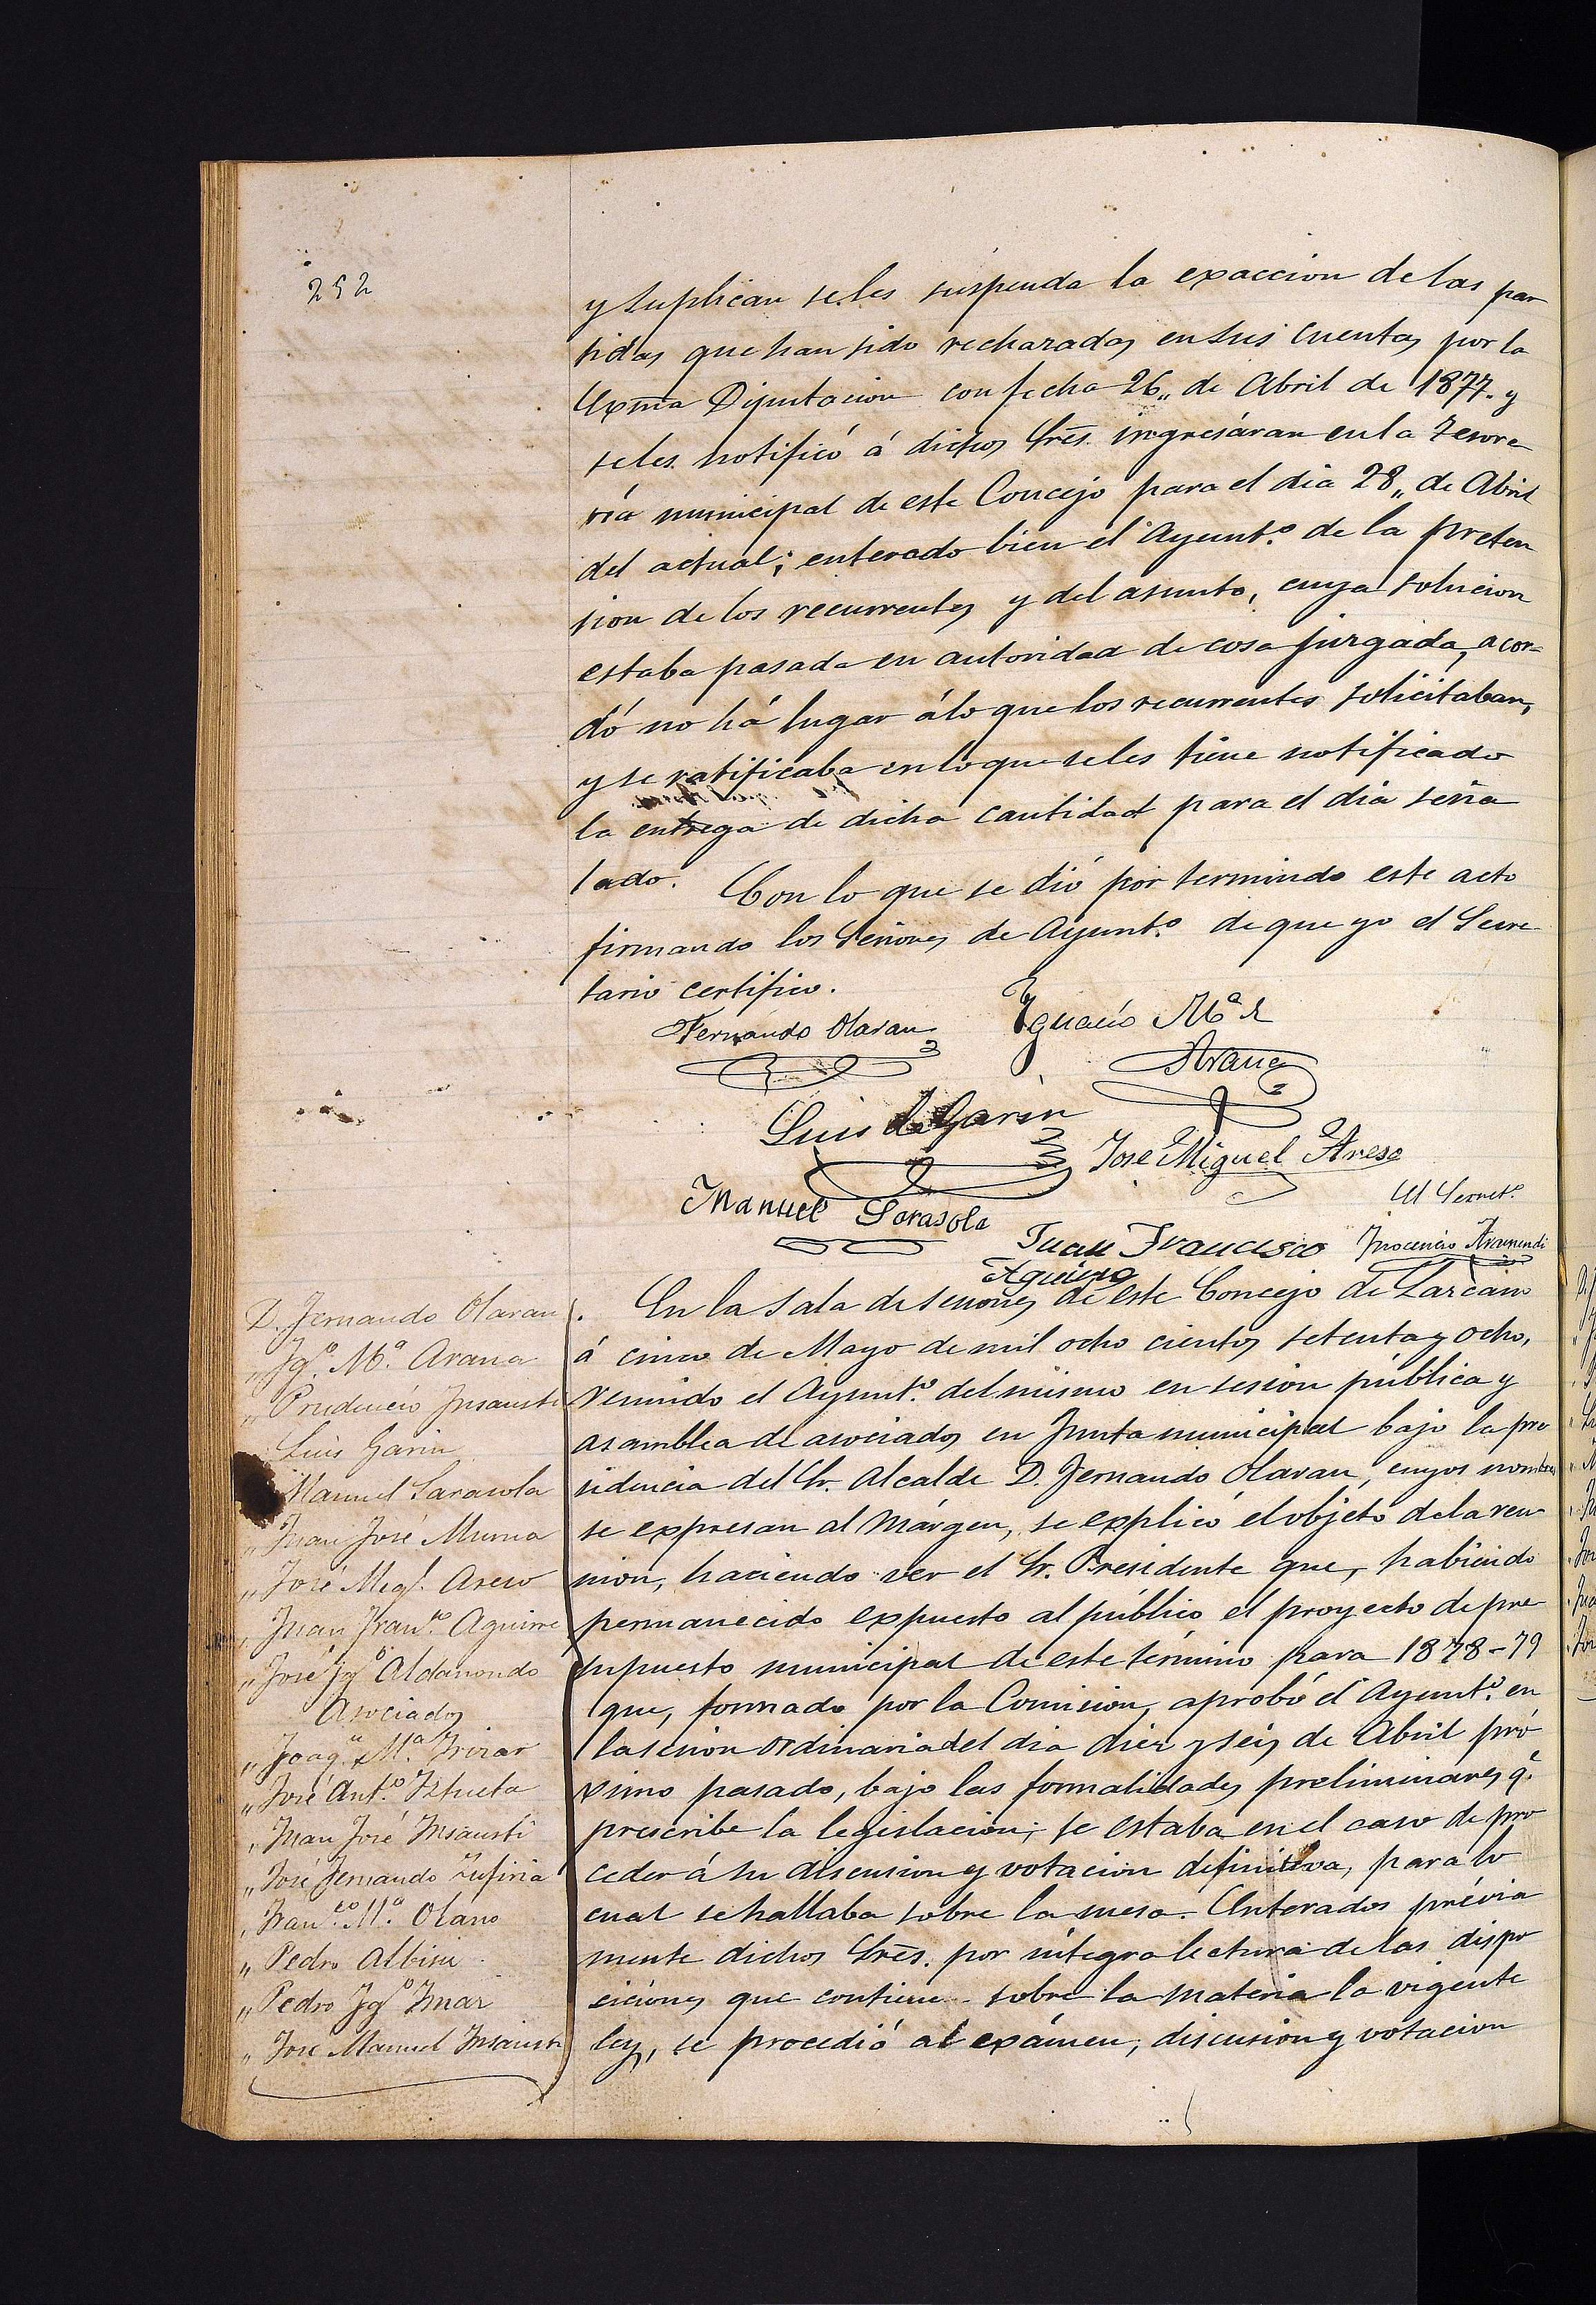 252
y suplican se les suspenda la exaccion de las par
tidas que han sido recharadas en sus cuentas por la
Exma Diputacion con fecha 26,, de Abril de 1877. y
se les notificó á dichos Sres. ingresáran en la Tesore-
ría municipal de este Concejo para el dia 28,, de Abril
del actual; enterado bien el Ayunt.º de la preten
sion de los recurrentes y del asunto, cuya solucion
estaba pasada en autoridad de cosa jurgada, acor=
dó no há lugar á lo que los recurrentes solicitaban,
y se ratificaba en lo que se les tiene notificado
la entrega de dicha cantidad para el dia seña
lado. Con lo que se dió por termindo este acto
firmando los Señores de Ayunt.º de que yo el Secre-
tario certifico.
Fernando Olaran Ignacio M.ª de
Arana
Luis de Garin
Jose Miguel Areso
Manuel Sarasola
El Secret.º
Juan Francisco Inocencio Aramendi
Aguirre
D. Fernando Olaran
,, Ig.º M.ª Arana
,, Prudencio Insausti
Luis Garin
Manuel Sarasola
,, Juan José Murua
,, José Migl. Areso
,, Juan Fran.co Aguirre
,, José Ig.º Aldanondo
Asociados
,, Joaq.n M.ª Irizar
,, José Ant.º Iztueta
,, Juan José Insausti
,, José Fernando Zufiria
,, Fran.co M.ª Olano
,, Pedro Albisu
,, Pedro Ig.º Imaz
,, José Manuel Insausti
En la Sala de sesiones de este Concejo de Larcain
á cinco de Mayo de mil ocho cientos setenta y ocho,
reunido el Ayunt.º del mismo en sesion pública y
asamblea de asociados en Junta municipal bajo la pre
sidencia del Sr. Alcalde D. Fernando Olaran, cuyos nombres
se expresan al márgen, se explicó el objeto de la reu-
nion, haciendo ver el Sr. Presidente que, habiendo
permanecido expuesto al público el proyecto de pre-
supuesto municipal de este término para 1878-79
que, formado por la Comision, aprobó el Ayunt.º en
la sesion ordinaria del dia diez y seis de Abril pró
ximo pasado, bajo las formalidades preliminares q.e
prescribe la legislacion; se estaba en el caso de pro
ceder á su discusion y votacion definitiva, para lo
cual se hallaba sobre la mesa. Enterados prévia
mente dichos Sres. por integra lectura de las dispo
siciones que contiene sobre la materia la vigente
ley, se procedió al exámen, discusion y votacion